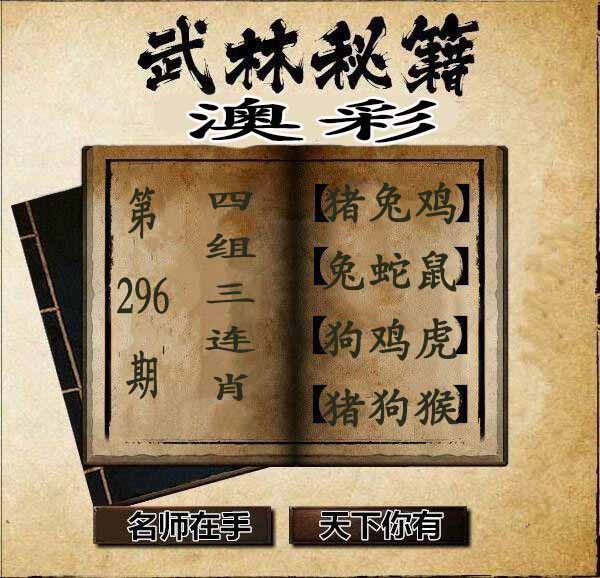 武林秘籍
澳彩
第296期
四组三连肖
【猪兔鸡】
【兔蛇鼠】
【狗鸡虎】
【猪狗猴】
名师在手
天下你有